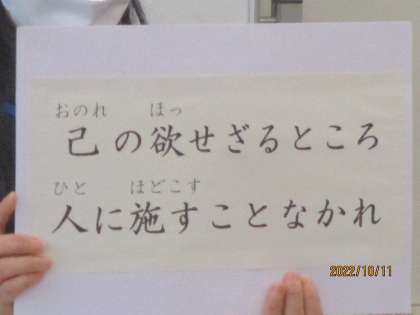 おのれ ほっ
己の欲せざるところ
ひと ほどこす
人に施すことなかれ
2022/10/11